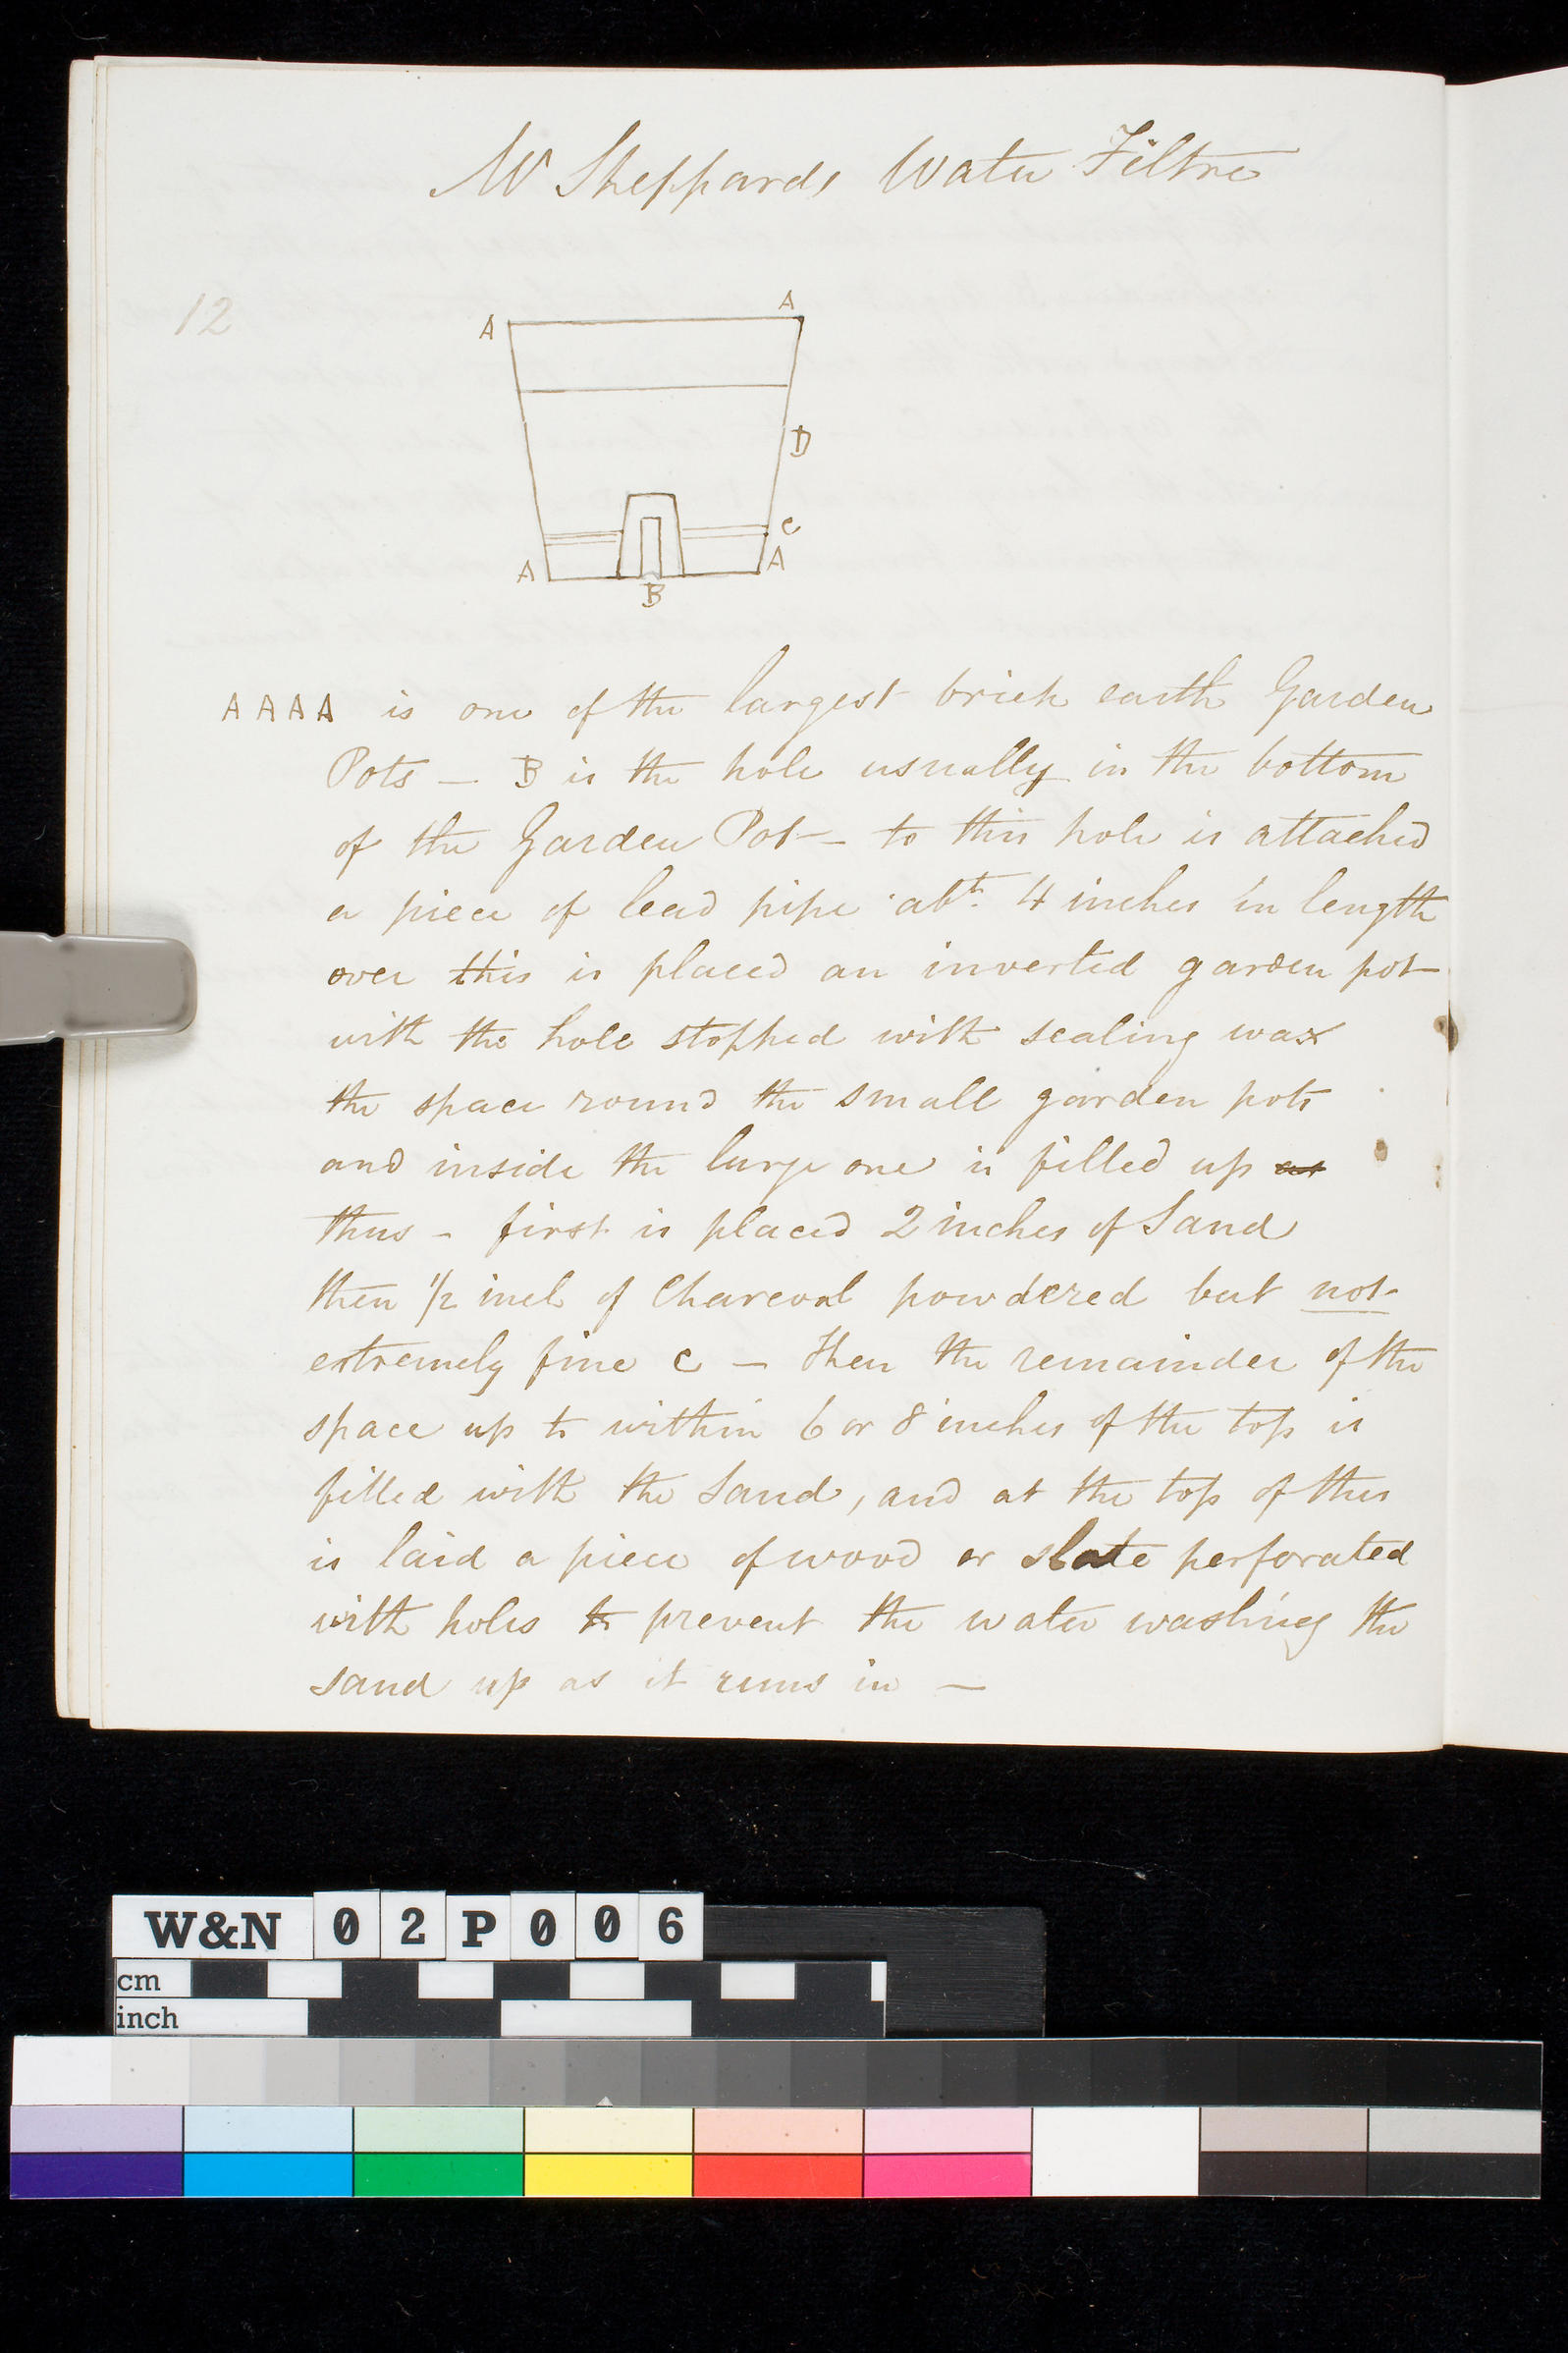 Mr Sheppards Water Filtre
12
A
A
D
C
A
A
B
A A A A is one of the largest brick earth Garden
Pots — B is the hole usually in the bottom
of the Garden Pot — to this hole is attached
a piece of lead pipe abt. 4 inches in length
over this is placed an inverted garden pot
with the hole stopped with sealing wax
the space round the small garden pots
and inside the large one is filled up
thus - first is placed 2 inches of Sand
then 1/2 inch of Charcoal powdered but not
extremely fine C — Then the remainder of the
space up to within 6 or 8 inches of the top is
filled with the Sand, and at the top of this
is laid a piece of wood or slate perforated
with holes to prevent the water washing the
sand up as it runs in —
W&N 0 2 P 0 0 6
cm
inch